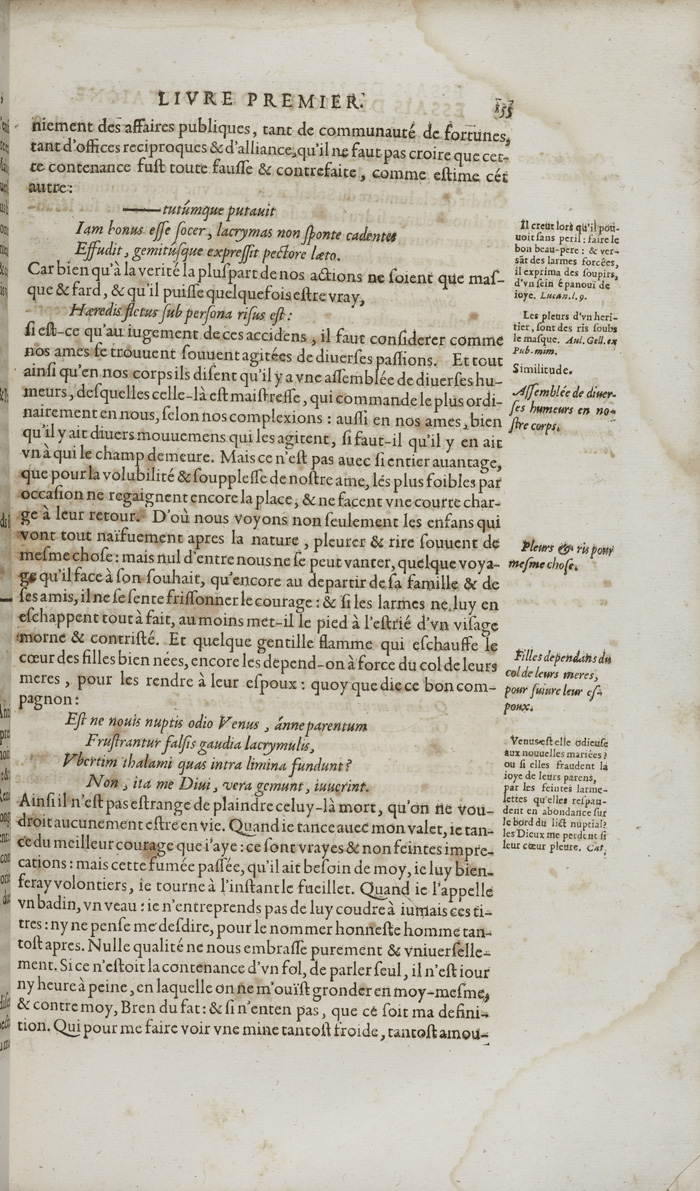 LIVRE PREMIER. 155
niement des affaires publiques, tant de communauté de fortunes,
tant d'offices reciproques & d'alliance, qu'il ne faut pas croire que cet-
te contenance fust toute fausse & contrefaite, comme estime cét
autre:
—— tutúmque putauit
Iam bonus esse socer, lacrymas non sponte cadentes
Effudit, gemitúsque expressit pectore læto.
Car bien qu'à la verité la pluspart de nos actions ne soient que mas-
que & fard, & qu'il puisse quelquefois estre vray,
Hæredis fletus sub persona risus est:
si est-ce qu'au iugement de ces accidens, il faut considerer comme
nos ames se trouuent souuent agitées de diuerses passions. Et tout
ainsi qu'en nos corps ils disent qu'il y a vne assemblée de diuerses hu-
meurs, desquelles celle-là est maistresse, qui commande le plus ordi-
nairement en nous, selon nos complexions: aussi en nos ames, bien
qu'il y ait diuers mouuemens qui les agitent, si faut-il qu'il y en ait
vn à qui le champ demeure. Mais ce n'est pas auec si entier auantage,
que pour la volubilité & soupplesse de nostre ame, les plus foibles par
occasion ne regaignent encore la place, & ne facent vne courte char-
ge à leur retour. D'où nous voyons non seulement les enfans qui
vont tout naïfuement apres la nature, pleurer & rire souuent de
mesme chose: mais nul d'entre nous ne se peut vanter, quelque voya-
ge qu'il face à son souhait, qu'encore au departir de sa famille & de
ses amis, il ne se sente frissonner le courage: & si les larmes ne luy en
eschappent tout à fait, au moins met-il le pied à l'estrié d'vn visage
morne & contristé. Et quelque gentille flamme qui eschauffe le
cœur des filles bien nées, encore les depend-on à force du col de leurs
meres, pour les rendre à leur espoux: quoy que die ce bon com-
pagnon:
Est ne nouis nuptis odio Venus, ánne parentum
Frustrantur falsis gaudia lacrymulis,
Vbertim thalami quas intra limina fundunt?
Non, ita me Diui, vera gemunt, iuuerint.
Ainsi il n'est pas estrange de plaindre celuy-là mort, qu'on ne vou-
droit aucunement estre en vie. Quand ie tance auec mon valet, ie tan-
ce du meilleur courage que i'aye: ce sont vrayes & non feintes impre-
cations: mais cette fumée passée, qu'il ait besoin de moy, ie luy bien-
feray volontiers, ie tourne à l'instant le fueillet. Quand ie l'appelle
vn badin, vn veau: ie n'entreprends pas de luy coudre à iamais ces ti-
tres: ny ne pense me desdire, pour le nommer honneste homme tan-
tost apres. Nulle qualité ne nous embrasse purement & vniuerselle-
ment. Si ce n'estoit la contenance d'vn fol, de parler seul, il n'est iour
ny heure à peine, en laquelle on ne m'ouïst gronder en moy-mesme,
& contre moy, Bren du fat: & si n'enten pas, que ce soit ma defini-
tion. Qui pour me faire voir vne mine tantost froide, tantost amou-
Il creut lors qu'il pou-
uoit sans peril: faire le
bon beau-pere: & ver-
sãt des larmes forcées,
il exprima des soupirs,
d'vn sein épanoui de
ioye. Lucan. l. 9.
Les pleurs d'vn heri-
tier, sont des ris soubs
le masque. Aul. Gell. ex
Pub. mim.
Similitude.
Assemblée de diuer-
ses humeurs en no-
stre corps.
Pleurs & ris pour
mesme chose.
Filles dependans du
col de leurs meres,
pour suiure leur es-
poux.
Venus est elle odieuse
aux nouuelles mariées?
ou si elles fraudent la
ioye de leurs parens,
par les feintes larme-
lettes qu'elles respan-
dent en abondance sur
le bord du lict nuptial?
les Dieux me perdent si
leur cœur pleure. Cat.